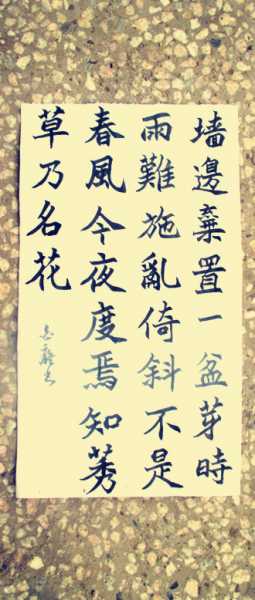 墙邊棄置一盆芽時
雨難施亂倚斜不是
春風今夜度焉知莠
草乃名花